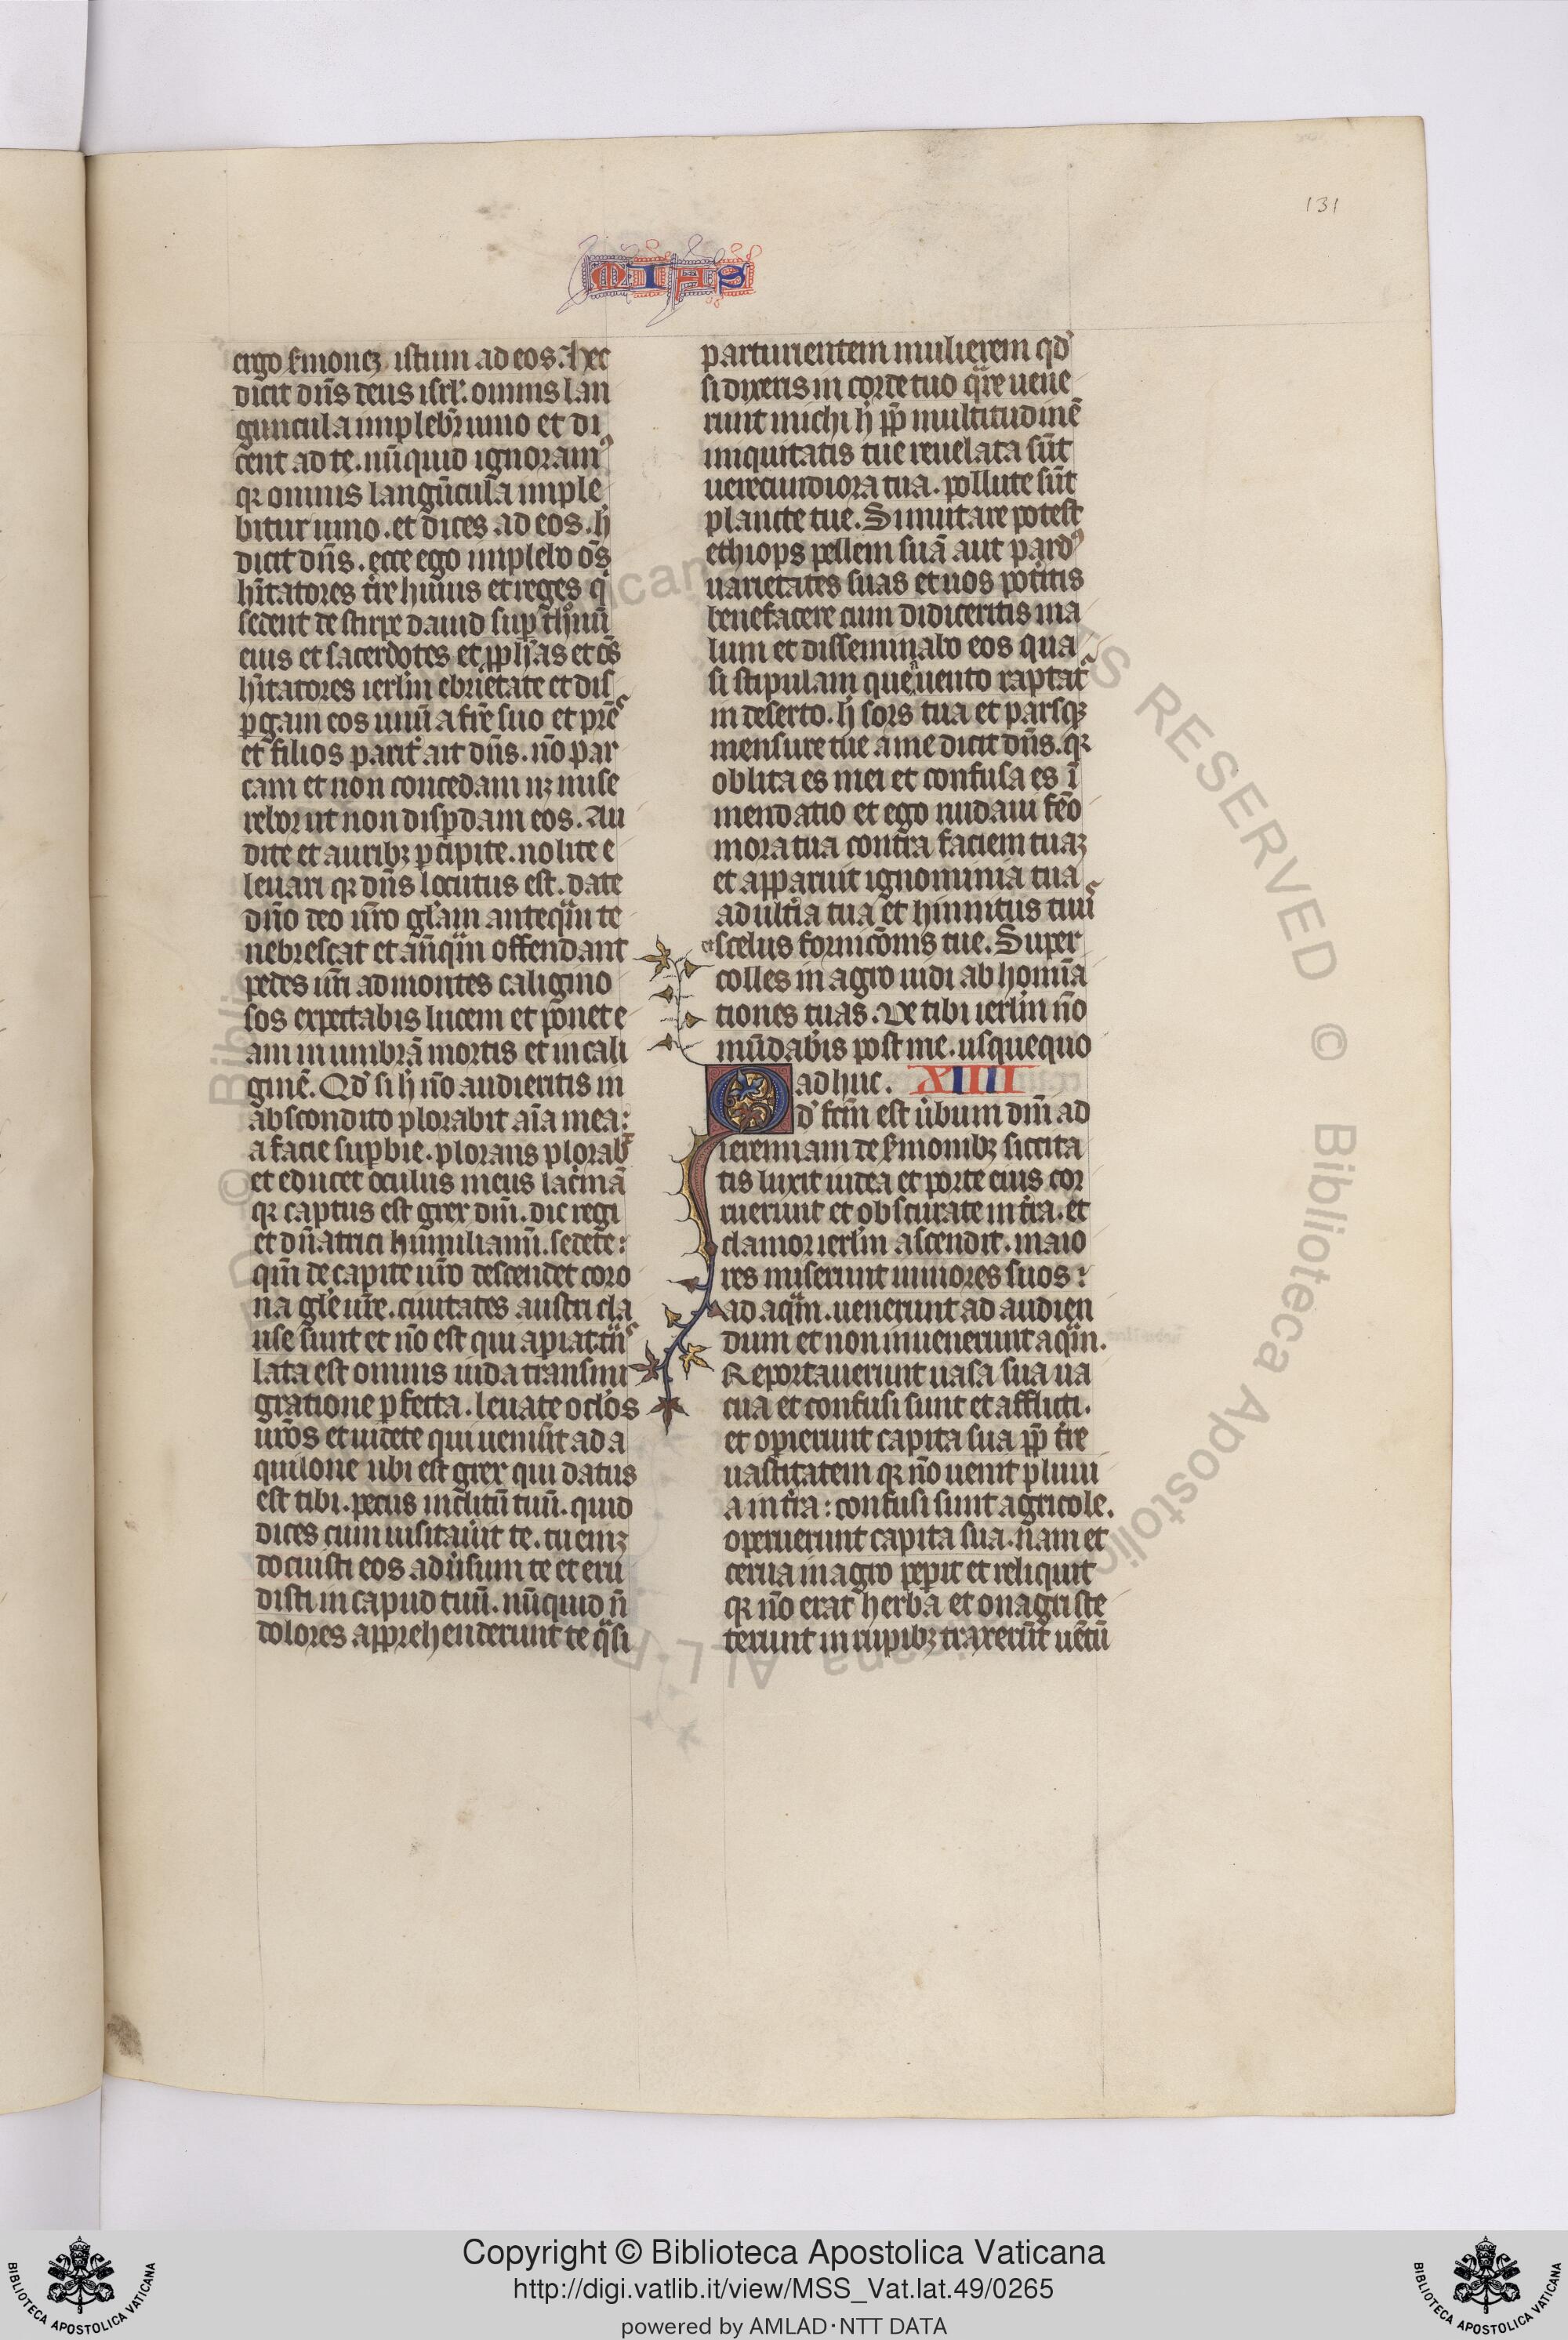 131
MIAS
ergo ẜmonez istum ad eos. Hec
dicit dn̄s deus isrl̓. omnis lan
guncula implebit̉ uino et di
cent ad te. nūquid ignoram⁹
qꝛ omnis langūcula imple
bitur uino. et dices ad eos. h̓
dicit dn̄s. ecce ego implebo om̄s
hītatores tr̄e huius et reges qͥ
sedent de stirpe dauid suꝑ thͦnū
eius et sacerdotes et ꝓph̓as et om̄s
hītatores ierl̓m ebrietate et dis
ꝑgam eos uirū a fr̄e suo et pr̄es
et filios parit̉ ait dn̄s. nō par
cam et non concedam nꝫ mise
rebor ut non disꝑdam eos. Au
dite et auribꝫ ꝑcipite. nolite e
leuari qꝛ dn̄s locutus est. date
dn̄o deo ur̄o gl̓am anteqͣm te
nebrescat et an̄qͣm offendant
pedes ur̄i ad montes caligino
sos expectabis lucem et ponet e
am in umbrā mortis et in cali
ginē. Qd̓ si h̓ nō audieritis in
abscondito plorabit aīa mea:
a facie suꝑbie. plorans plorabit̉
et educet oculus meus lac̉mā
qꝛ captus est grex dn̄i. dic regi
et dn̄atrici humiliamī. sedete:
qm̄ de capite ur̄o descendet coro
na gl̓e ur̄e. ciuitates austri cla
use sunt et nō est qui apiat. tͣns
lata est omnis iuda transmi
gratione ꝑfecta. leuate ocl̓os
ur̄os et uidete qui ueniūt ad a
quilone ubi est grex qui datus
est tibi. pecus inclitū tuū. quid
dices cum uisitau̓it te. tu enīꝫ
docuisti eos adu̓sum te et eru
disti in capud tuū. nūquid n̄
dolores apprehenderunt te qͣsi
parturientem mulierem qd̓
si dixeris in corde tuo qͣre uene
runt michi h̓ ꝓp̄ multitudinē
iniquitatis tue reuelata sūt
uerecundiora tua. pollute sūt
plante tue. Si mutare potest
ethiops pellem suā aut pard⁹
uarietates suas et uos pot̉itis
benefacere cum didiceritis ma
lum et disseminabo eos qua
si stipulam que uento raptat̉
in deserto. h̓ sors tua et parsqꝫ
mensure tue a me dicit dn̄s. qꝛ
oblita es mei et confusa es ī
mendatio et ego nudaui feo
mora tua contra faciem tuaꝫ
et apparuit ignominia tua
adult̉ia tua et hinnitus tuus
et scelus fornicōnis tue. Super
colles in agro uidi abhomīa
tiones tuas. Ve tibi ierl̓m nō
mūdabis̉ post me. usquequo
adhuc. XIIII
Qd̓ fctm̄ est u̓bum dn̄i ad
ieremiam de ẜmonibꝫ siccita
tis luxit iudea et porte eius cor
ruerunt et obscurate in tr̄a. et
clamor ierl̓m ascendit. maio
res miserunt minores suos:
ad aqͣm. uenerunt ad audien
dum et non inuenerunt aqͣm.
Reportauerunt uasa sua ua
cua et confusi sunt et afflicti.
et opierunt capita sua ꝓp̄ tr̄e
uastitatem qꝛ nō uenit pluui
a in tr̄a: confusi sunt agricole.
operuerunt capita sua. nam et
cerua in agro peperit et reliquit
qꝛ nō erat herba et onagri ste
terunt in rupibꝫ traxerūt uētū
Copyright © Biblioteca Apostolica Vaticana
http://digi.vatlib.it/view/MSS_Vat.lat.49/0265
powered by AMLAD·NTT DATA
BIBLIOTECA APOSTOLICA VATICANA
BIBLIOTECA APOSTOLICA VATICANA